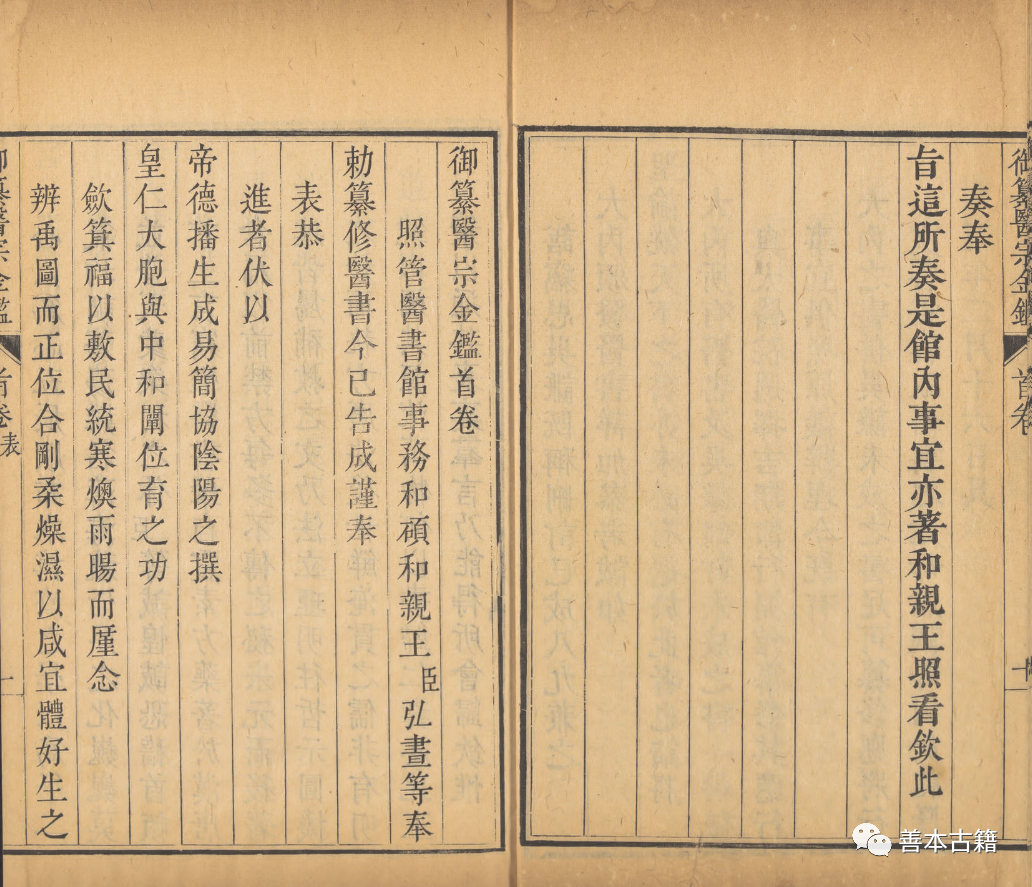 御纂醫宗金鑑
首卷
十
奏奉
旨這所奏是館內事宜亦著和親王照看欽此
御纂醫宗金鑑首卷
照管醫書館事務和碩和親王臣弘晝等奉
勅纂修醫書今已告成謹奉
表恭
進者伏以
帝德播生成易簡協陰陽之撰
皇仁大胞與中和闡位育之功
歛箕福以敷民統寒燠雨暘而厪念
辨禹圖而正位合剛柔燥濕以咸宜體好生之
御纂醫宗金鑑
首卷表
善本古籍